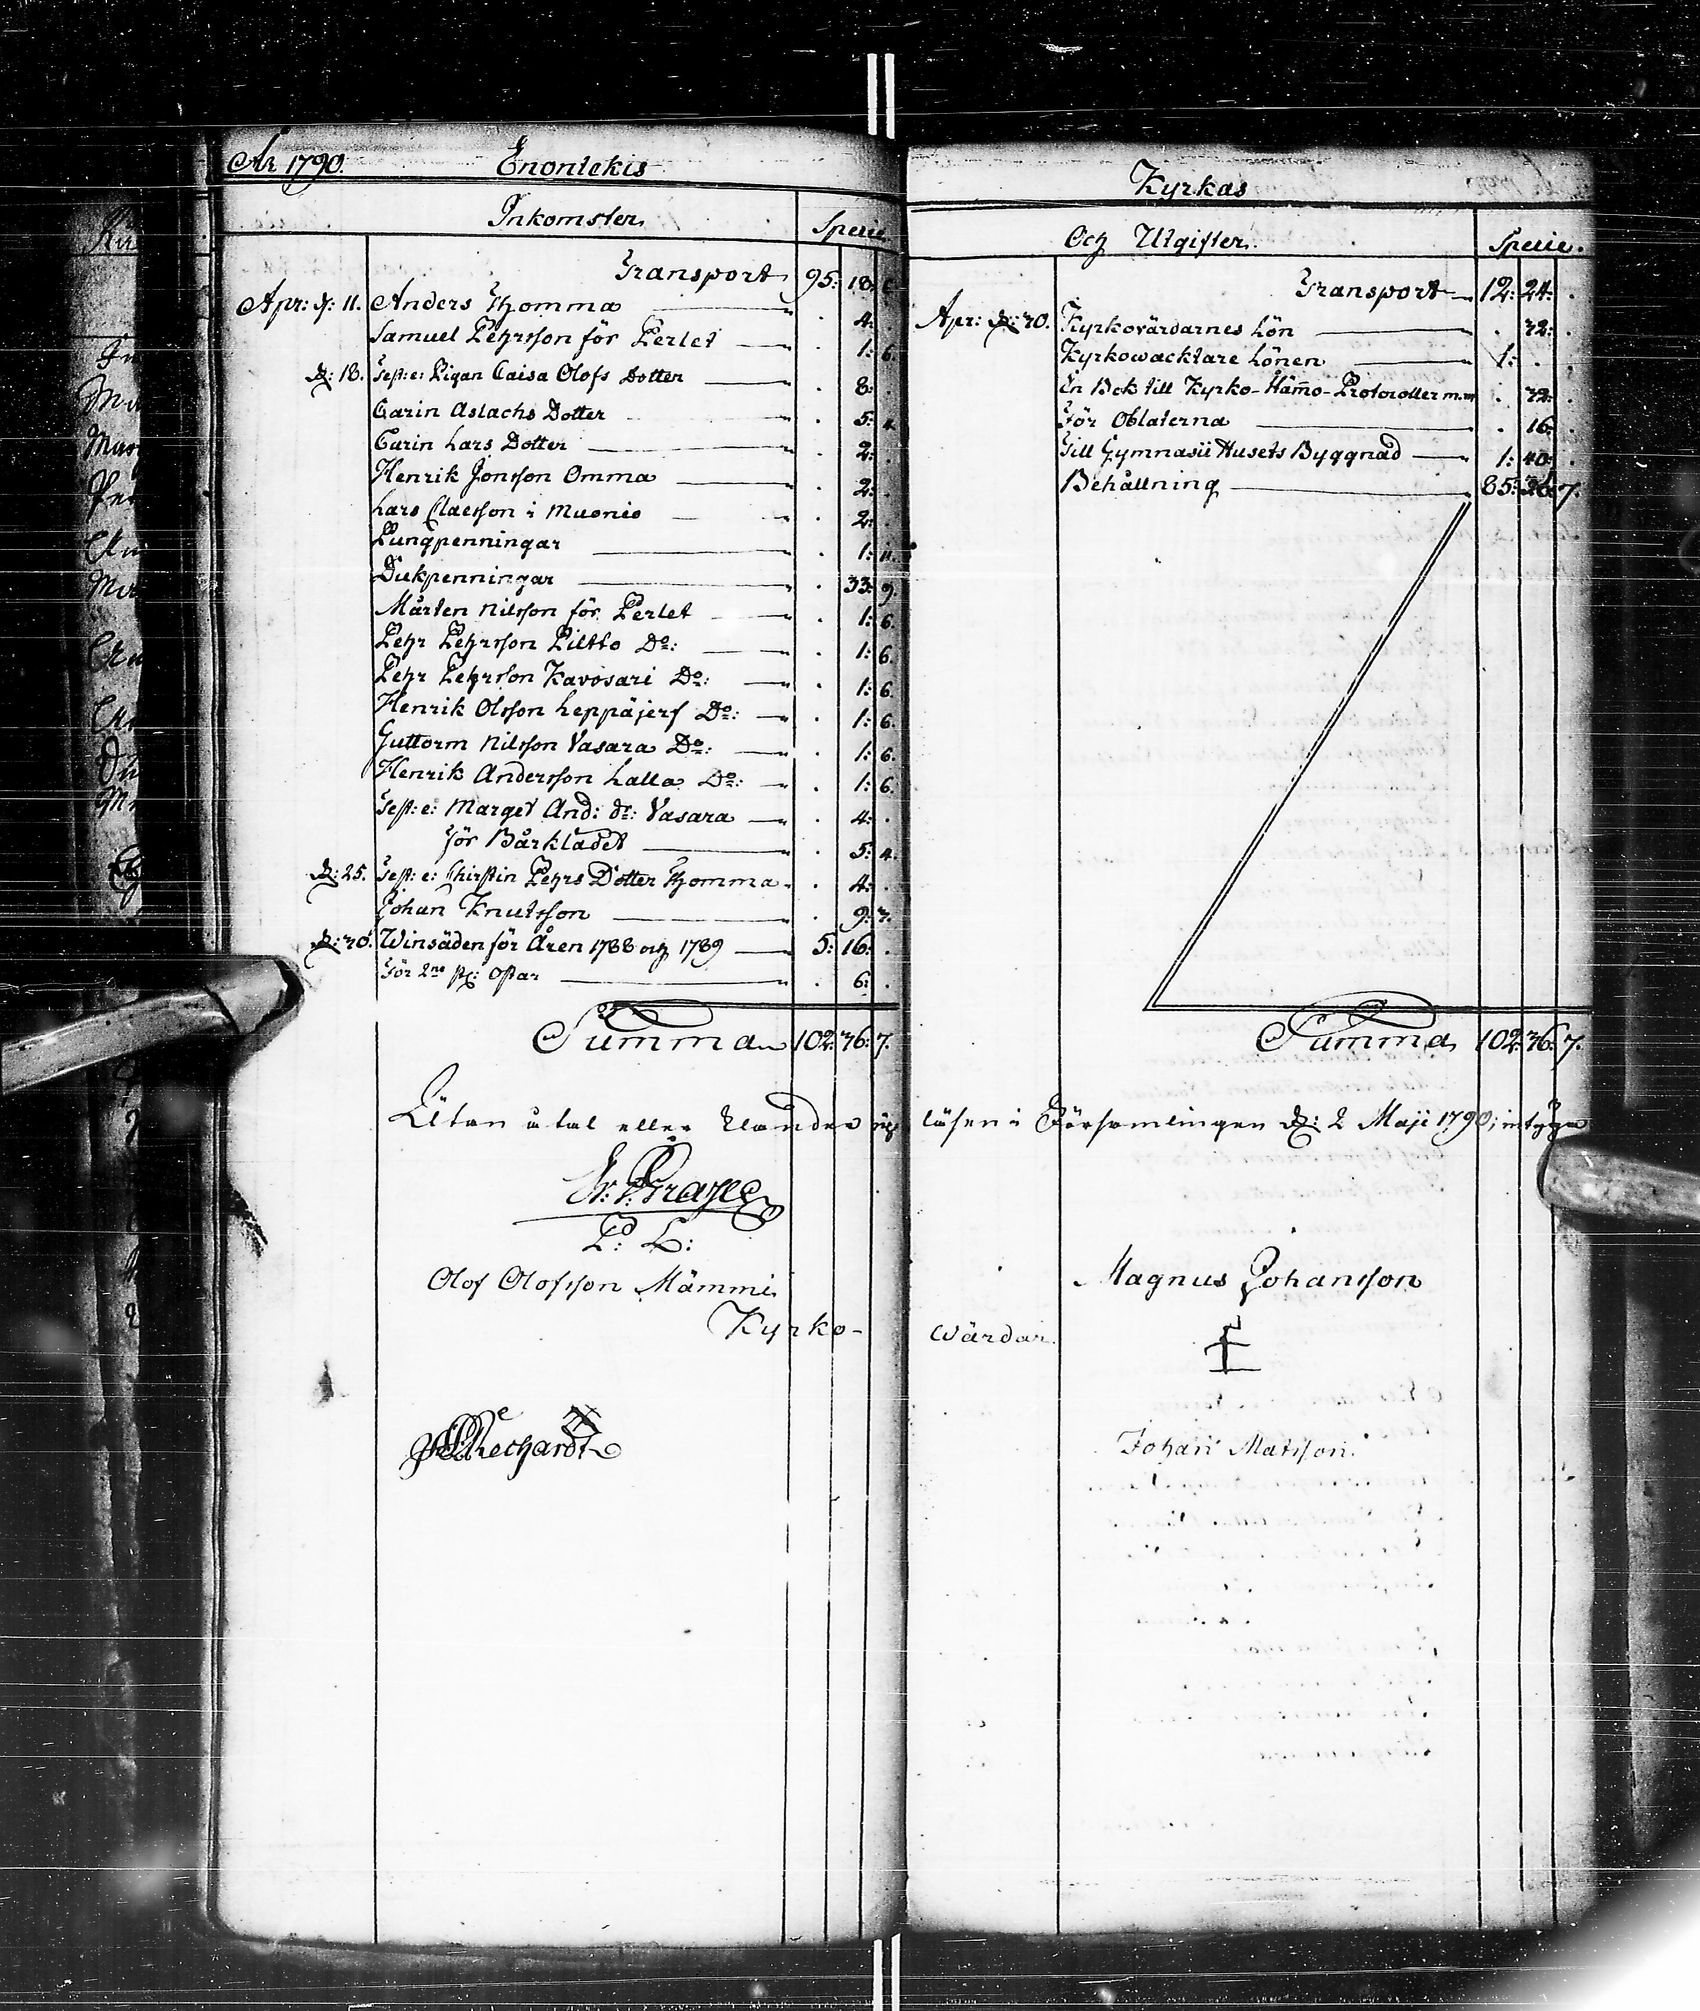 År 1790. Enontekis
Inkomster. Specie.
Transport 95: 18: 6.
Apr: d: 11. Anders Thomma . 4: .
Samuel Pehrsson för Perlet . 1: 6.
D: 18. Test: e: Pigan Caisa Olofs Dotter . 8: .
Carin Aslachs Dotter . 5: 4.
Carin Lars Dotter . 2: .
Henrik Jonsson Omma . 2: .
Lars Claesson i Muonio . 2: .
Pungpenningar . 1: 11.
Dukpenningar . 33: 9.
Mårten Nilsson för Perlet . 1: 6.
Pehr Pehrsson Piltto Do: . 1: 6.
Pehr Pehrsson Kavosari Do: . 1: 6.
Henrik Olsson Leppäjerf Do: . 1: 6.
Guttorm Nilsson Vasara Do: . 1: 6.
Henrik Andersson Lalla Do: . 1: 6.
Test: e: Marget And: dr: Vasara . 4: .
för Bårklädet . 5: 4.
D: 25. Test: e: Chirstin Pehrs Dotter Thomma . 4: .
Johan Knutsson . 9: 3.
D: 30. Winsäden för Åren 1788 och 1789 5: 16: .
För 2ne st: Ostar . 6: .
Summa 102: 36: 7.
Kyrkas
Och Utgifter. Specie.
Transport 12: 24: .
Apr: D: 30. Kyrkovärdarnes Lön . 32: .
Kyrkowacktare Lönen 1: . .
En Bok till Kyrko-Hamo-Protocoller m.m . 32: .
För Oblaterna . 16: .
Till Gymnasii Husets Byggnad 1: 40: .
Behållning 85: 36: 7.
Summa 102: 36: 7.
Utan åtal eller klander up läsen i Församlingen D: 2 Maji 1790; intyga
P: L:
Olof Olofsson Mämmi Magnus Johansson
Kyrko- wärdar.
Johan Matsson.